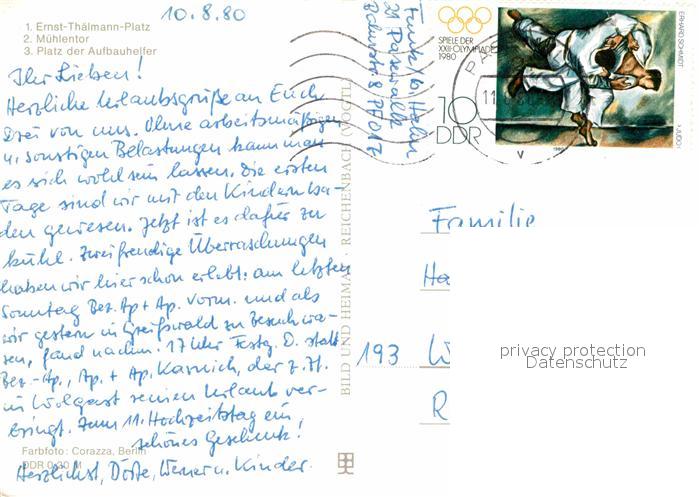 10.8.80
1. Ernst-Thälmann-Platz
2. Mühlentor
3. Platz der Aufbauhelfer
Ihr Lieben!
Herzliche Urlaubsgrüße an Euch
Drei von uns. Ohne arbeitsmäßigen
u. sonstigen Belastungen kann man
es sich wohl sein lassen. Die ersten
Tage sind wir mit den Kindern ba-
den gewesen. Jetzt ist es dafür zu
kühl. Zwei freudige Überraschungen
haben wir hier schon erlebt: am letzten
Sonntag Bez. Ap + Ap. vorm. und als
wir gestern in Greifswald zu Besuch wa-
ren, fand nachm. 17 Uhr Festg. D. statt
Bez.-Ap., Ap. + Ap. Karnich, der z. Zt.
in Wolgast seinen Urlaub ver-
bringt. Zum 11. Hochzeitstag ein
schönes Geschenk!
Herzlichst, Dörte, Werner u. Kinder.
Farbfoto: Corazza, Berlin
DDR 0,20 M
BILD UND HEIMAT · REICHENBACH (VOGTL)
21 Pasewalk
SPIELE DER
XXII. OLYMPIADE
1980
10
DDR
ERHARD SCHMIDT
JUDO
1980
Familie
Ha
193 W
R
privacy protection
Datenschutz